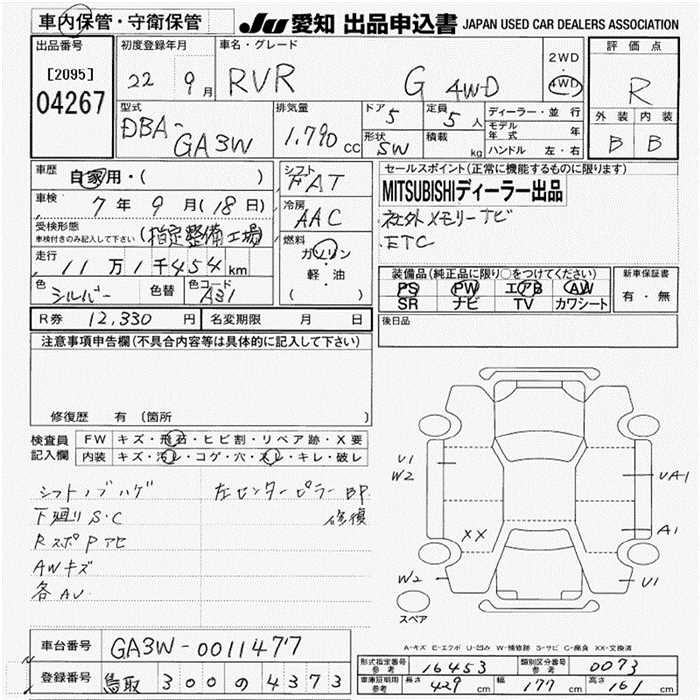 車内保管・守衛保管
JU 愛知 出品申込書 JAPAN USED CAR DEALERS ASSOCIATION
出品番号
[2095]
04267
初度登録年月
22 9月
車名・グレード
RVR G 4WD
2WD
・
4WD
評価点
R
外装 内装
B B
型式
DBA-
GA3W
排気量
1.790 cc
ドア
5
形状
SW
定員
5人
積載
kg
ディーラー・並行
モデル年式 年
ハンドル 左・右
車歴
自家用・( )
車検
7年9月(18日)
受検形態
車検付きのみ記入して下さい
(指定整備工場)
走行
11万1千454km
色
シルバー
色替
色コード
A31
シフト
FAT
冷房
AAC
燃料
ガソリン
軽・油
( )
セールスポイント(正常に機能するものに限ります)
MITSUBISHIディーラー出品
社外メモリーナビ
ETC
装備品(純正品に限り○をつけてください)
PS PW エアB AW
SR ナビ TV カワシート
新車保証書
有・無
R券 12,330円
名変期限 月 日
後日品
注意事項申告欄(不具合内容等は具体的に記入して下さい)
修復歴 有(箇所 )
検査員
記入欄
FW キズ・飛石・ヒビ割・リペア跡・X要
内装 キズ・汚レ・コゲ・穴・スレ・キレ・破レ
シフトノブハゲ
下廻りS・C
RスポPアセ
AWキズ
各AU
左センターピラーBP
修復
U1
W2
XX
W2
UA1
A1
U1
スペア
A-キズ E-エクボ U-凹み W-補修跡 S-サビ C-腐食 XX-交換済
車台番号
GA3W-0011477
登録番号
鳥取 300の4373
形式指定番号
参考
16453
類別区分番号
参考
0073
車庫証明用
参考
長さ 429cm
幅 177cm
高さ 161cm